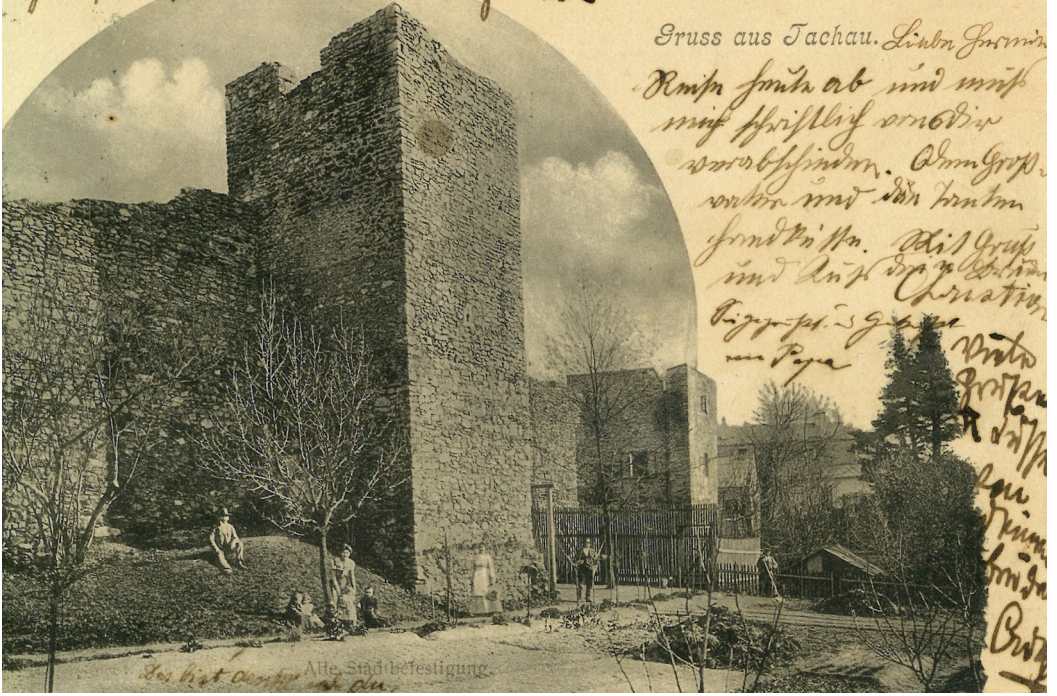 Gruss aus Tachau. Liebe Hermine
Reise heute ab und muß
mich schriftlich von dir
verabschieden. Dem Groß-
vater und den Tanten
Handküsse. Mit Gruß
und Kuß dein Bruder
Christian
Papa
Viele
Grüße
Küsse
von
Deinem
Bruder
Alte Stadtbefestigung.
du.